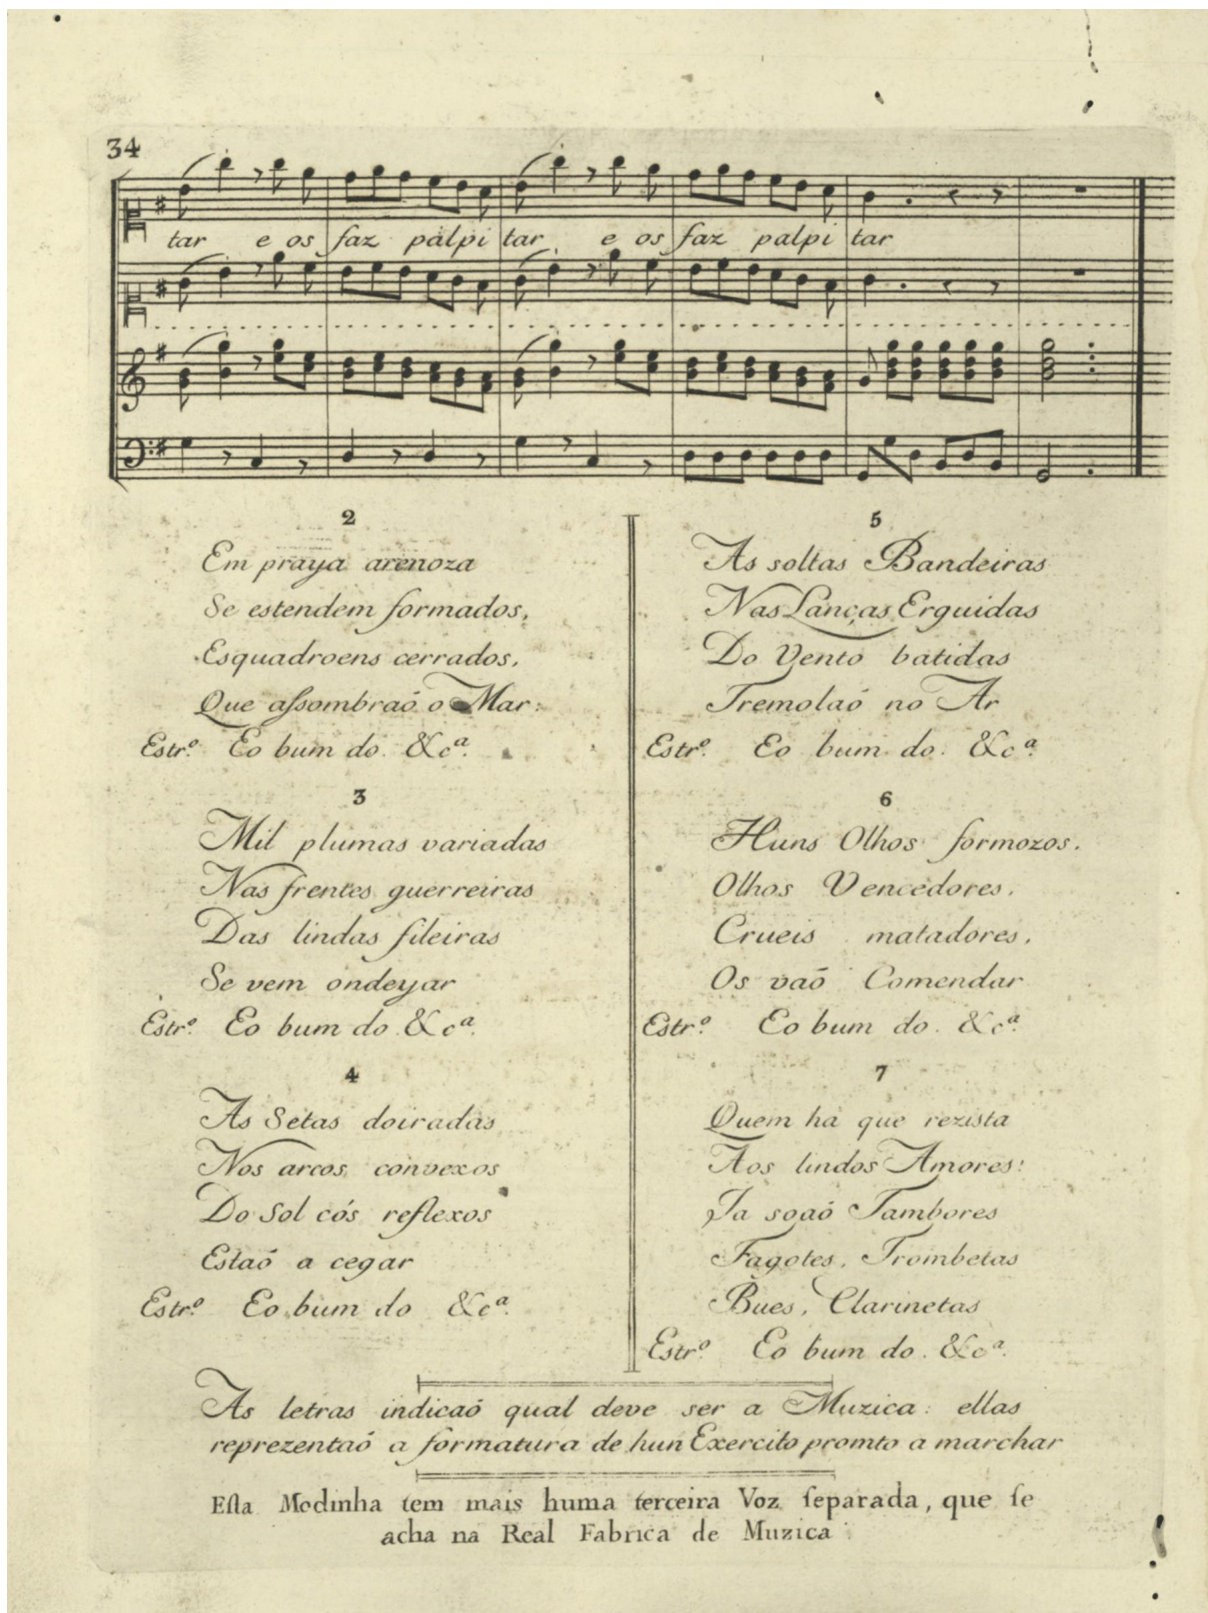 34
tar e os faz palpi tar e os faz palpi tar
2
Em praya arenoza
Se estendem formados,
Esquadroens cerrados,
Que aſsombraõ o Mar:
Estrº. Eo bum do. &cª.
3
Mil plumas variadas
Nas frentes guerreiras
Das lindas fileiras
Se vem ondeyar
Estrº. Eo bum do. &cª.
4
As Setas doiradas
Nos arcos convexos
Do Sol cós reflexos
Estaõ a cegar
Estrº. Eo bum do &cª.
5
As soltas Bandeiras
Nas Lanças Erguidas
Do Vento batidas
Tremolaõ no Ar
Estrº. Eo bum do. &cª.
6
Huns Olhos formozos.
Olhos Vencedores.
Crueis matadores.
Os vaõ Comendar
Estrº. Eo bum do. &cª.
7
Quem ha que rezista
Aos lindos Amores:
Ja soaõ Tambores
Fagotes, Trombetas
Bues, Clarinetas
Estrº. Eo bum do. &cª.
As letras indicaõ qual deve ser a Muzica: ellas
reprezentaõ a formatura de hun Exercito promto a marchar
Eſta Modinha tem mais huma terceira Voz ſeparada, que ſe
acha na Real Fabrica de Muzica.